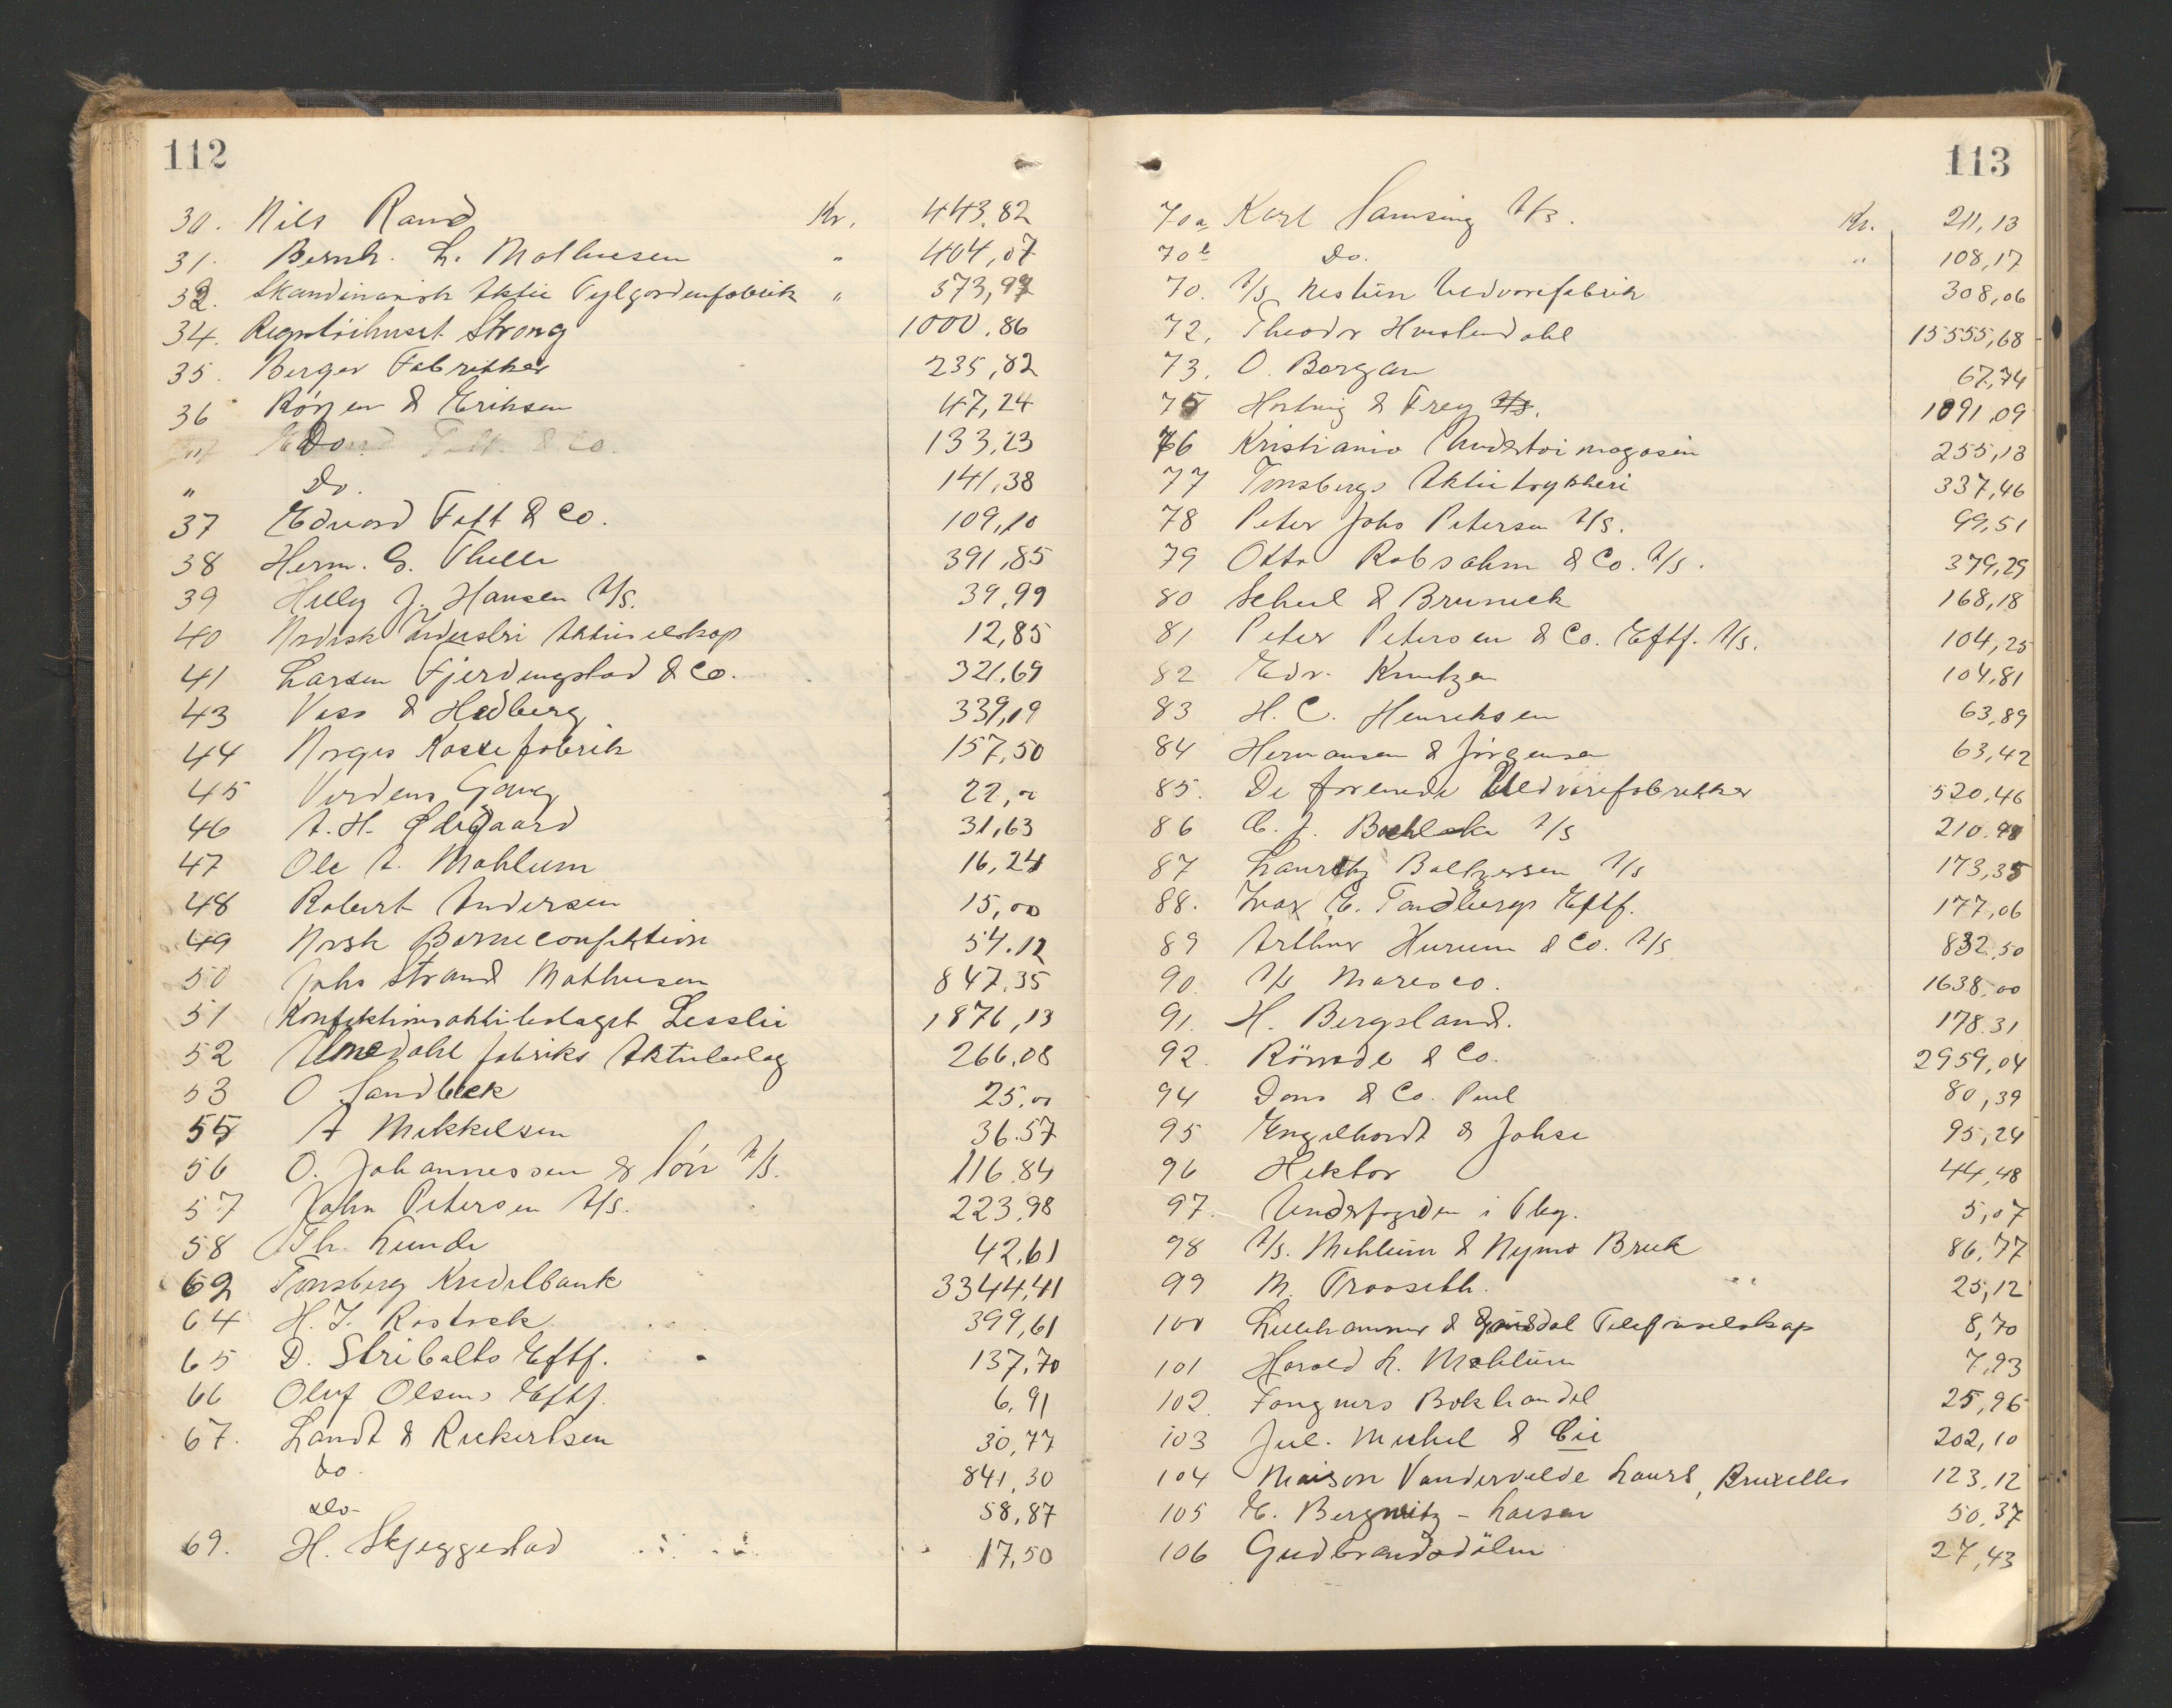 112
30. Nils Rand Kr. 443.82
31. Bernh. L. Mathiesen " 404,07
32. Skandinavisk Aktie Tylgardinfabrik " 373,97
34. Regntöihuset Strong 1000.86
35. Berger Fabrikker 235,82
36 Rörjen & Eriksen 47,24
" Do. 133,23
" Do. 141,38
37 Edvard Fett & Co. 109,10
38 Herm. G. Thelle 391,85
39 Helly J. Hansen A/S. 39,99
40 Nordisk Industri Aktieselskap 12,85
41 Larsen Fjerdingstad & Co. 321.69
43 Voss & Hedberg 339,19
44 Norges Kassefabrik 157,50
45 Verdens Gang 22,00
46 A. H. Ødegaard 31,63
47 Ole A. Mæhlum 16,24
48 Robert Andersen 15,00
49 Norsk Barneconfektion 54.12
50 Johs Strand Mathiesen 847.35
51 Konfektionsaktiebolaget Lesslie 1876,13
52 Unedahl fabriks Aktiebolag 266.08
53 O Sandbeck 25.00
55 A Mikkelsen 36.57
56 O. Johannessen & Sön A/S. 116.84
57 John Petersen A/S. 223.98
58 Th. Lunde 42.61
62 Tonsberg Kreditbank 3344,41
64 H. J. Rostock 399,61
65 D. Stribolts Eftf. 137,70
66 Oluf Olsens Eftf. 6.91
67. Landt & Rickertsen 30,77
do. 841,30
do- 58,87
69. H. Skjeggestad 17,50
113
70a Karl Samsing A/S. Kr. 211,13
70b Do. " 108,17
70. A/S Nesttun Uldvarefabrik 308,06
72, Theodor Hvislendahl 15555,68
73. O. Borgan 67,74
75 Hartvig & Frey A/S. 1091,09
76 Kristiania Undertöi magasin 255,13
77 Tonsbergs Aktietrykkeri 337,46
78 Peter Johs Petersen A/S. 99,51
79 Otto Robsahm & Co. A/S. 379,29
80 Scheel & Brunick 168,18
81 Peter Petersen & Co. Eftf. A/S. 104,25
82 Edv. Knutzen 104,81
83 H. C. Henriksen 63,89
84 Hermansen & Jörgensen 63,42
85. De forenede Uldvarefabrikker 520.46
86 C. J. Boehlcke A/S 210.90
87 Lauritz Baltzersen A/S 173,35
88. Ivar E. Tandbergs Eftf. 177,06
89 Arthur Hurum & Co. A/S 832.50
90. A/S Maresco. 1638.00
91. H. Bergsland. 178.31
92. Rönode & Co. 2959,04
94 Dons & Co. Paul 80,39
95 Engelhardt & Johse 95,24
96 Hektor 44,48
97. Underfogden i Tbg. 5,07
98 A/S. Mæhlum & Nymo Bruk 86,77
99 M. Trooseth. 25,12
100 Lillehammer & Gausdal Telefonselskap 8,70
101 Harald L. Mæhlum 7,93
102. Fangners Bokhandel 25,96
103 Jul. Michel & Cie 202,10
104 Maison Vandervelde Laurl, Bruxelles 123.12
105 E. Bergwitz - Larsen 50.37
106 Gudbrandsdölen 27,43